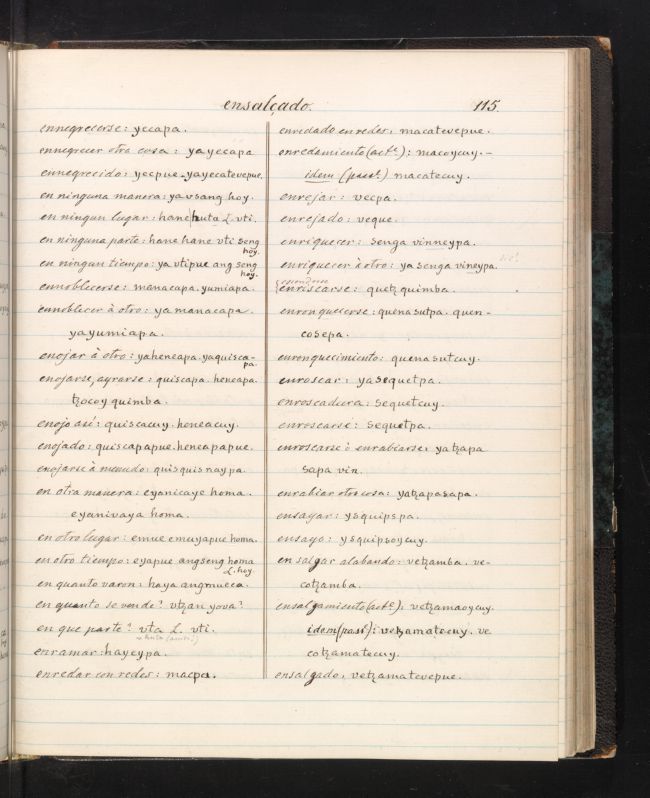 ensalçado.
115.
ennegrecerse: yecapa.
ennegrecer otra cosa: yayecapa
ennegrecido: yecpue-yayecatevepue.
en ninguna manera: ya vsang hoy.
en ningun lugar: hane huta L. vti.
en ninguna parte: hane hane vti seng
hoy.
en ningun tiempo: ya vtipue ang seng
hoy.
ennoblecerse: manacapa. yumiapa.
ennoblecer à otro: ya manacapa.
yayumiapa.
enojar à otro: yaheneapa. yaquisca-
pa.
enojarse, ayrarse: quiscapa. heneapa.
tzocoy quimba.
enojo asi: quiscacuy. heneacuy.
enojado: quiscapapue. heneapapue.
enojarse à menudo: quisquisnaypa.
en otra manera: eyanicaye homa.
eyanivaya homa.
en otro lugar: emue emuyapue homa.
en otro tiempo: eyapue angseng homa
L. hoy.
en quanto varon: haya angmueca.
en quanto se vende? vtzan yova?
en que parte? vta L. vti.
enramar: hayeypa.
enredar con redes: macpa.
enredado en redes, macatevepue.
enredamiento (acte): macoycuy.-
idem (past.) macatecuy.
enrejar: vecpa.
enrejado: veque.
enriquecer: senga vinneypa.
enriquecer à otro: ya senga vineypa.
enriscarse: quetz quimba.
enronquecerse: quenasutpa. quen-
cosepa.
enronquecimiento: quenasutcuy.
enroscar: yasequetpa.
enroscadura: sequetcuy.
enroscarse: sequetpa.
enroscarse ò enrabiarse: yatzapa
sapa vin.
enrabiar otra cosa: yatzapasapa.
ensayar: ysquipspa.
ensayo: ysquipsoycuy.
ensalgar alabando: vetzamba. ve-
cotzamba.
ensalgamiento (acte): vetzamaoycuy.
idem (past): vetzamatecuy. ve
cotzamatecuy.
ensalgado, vetzamatevepue.